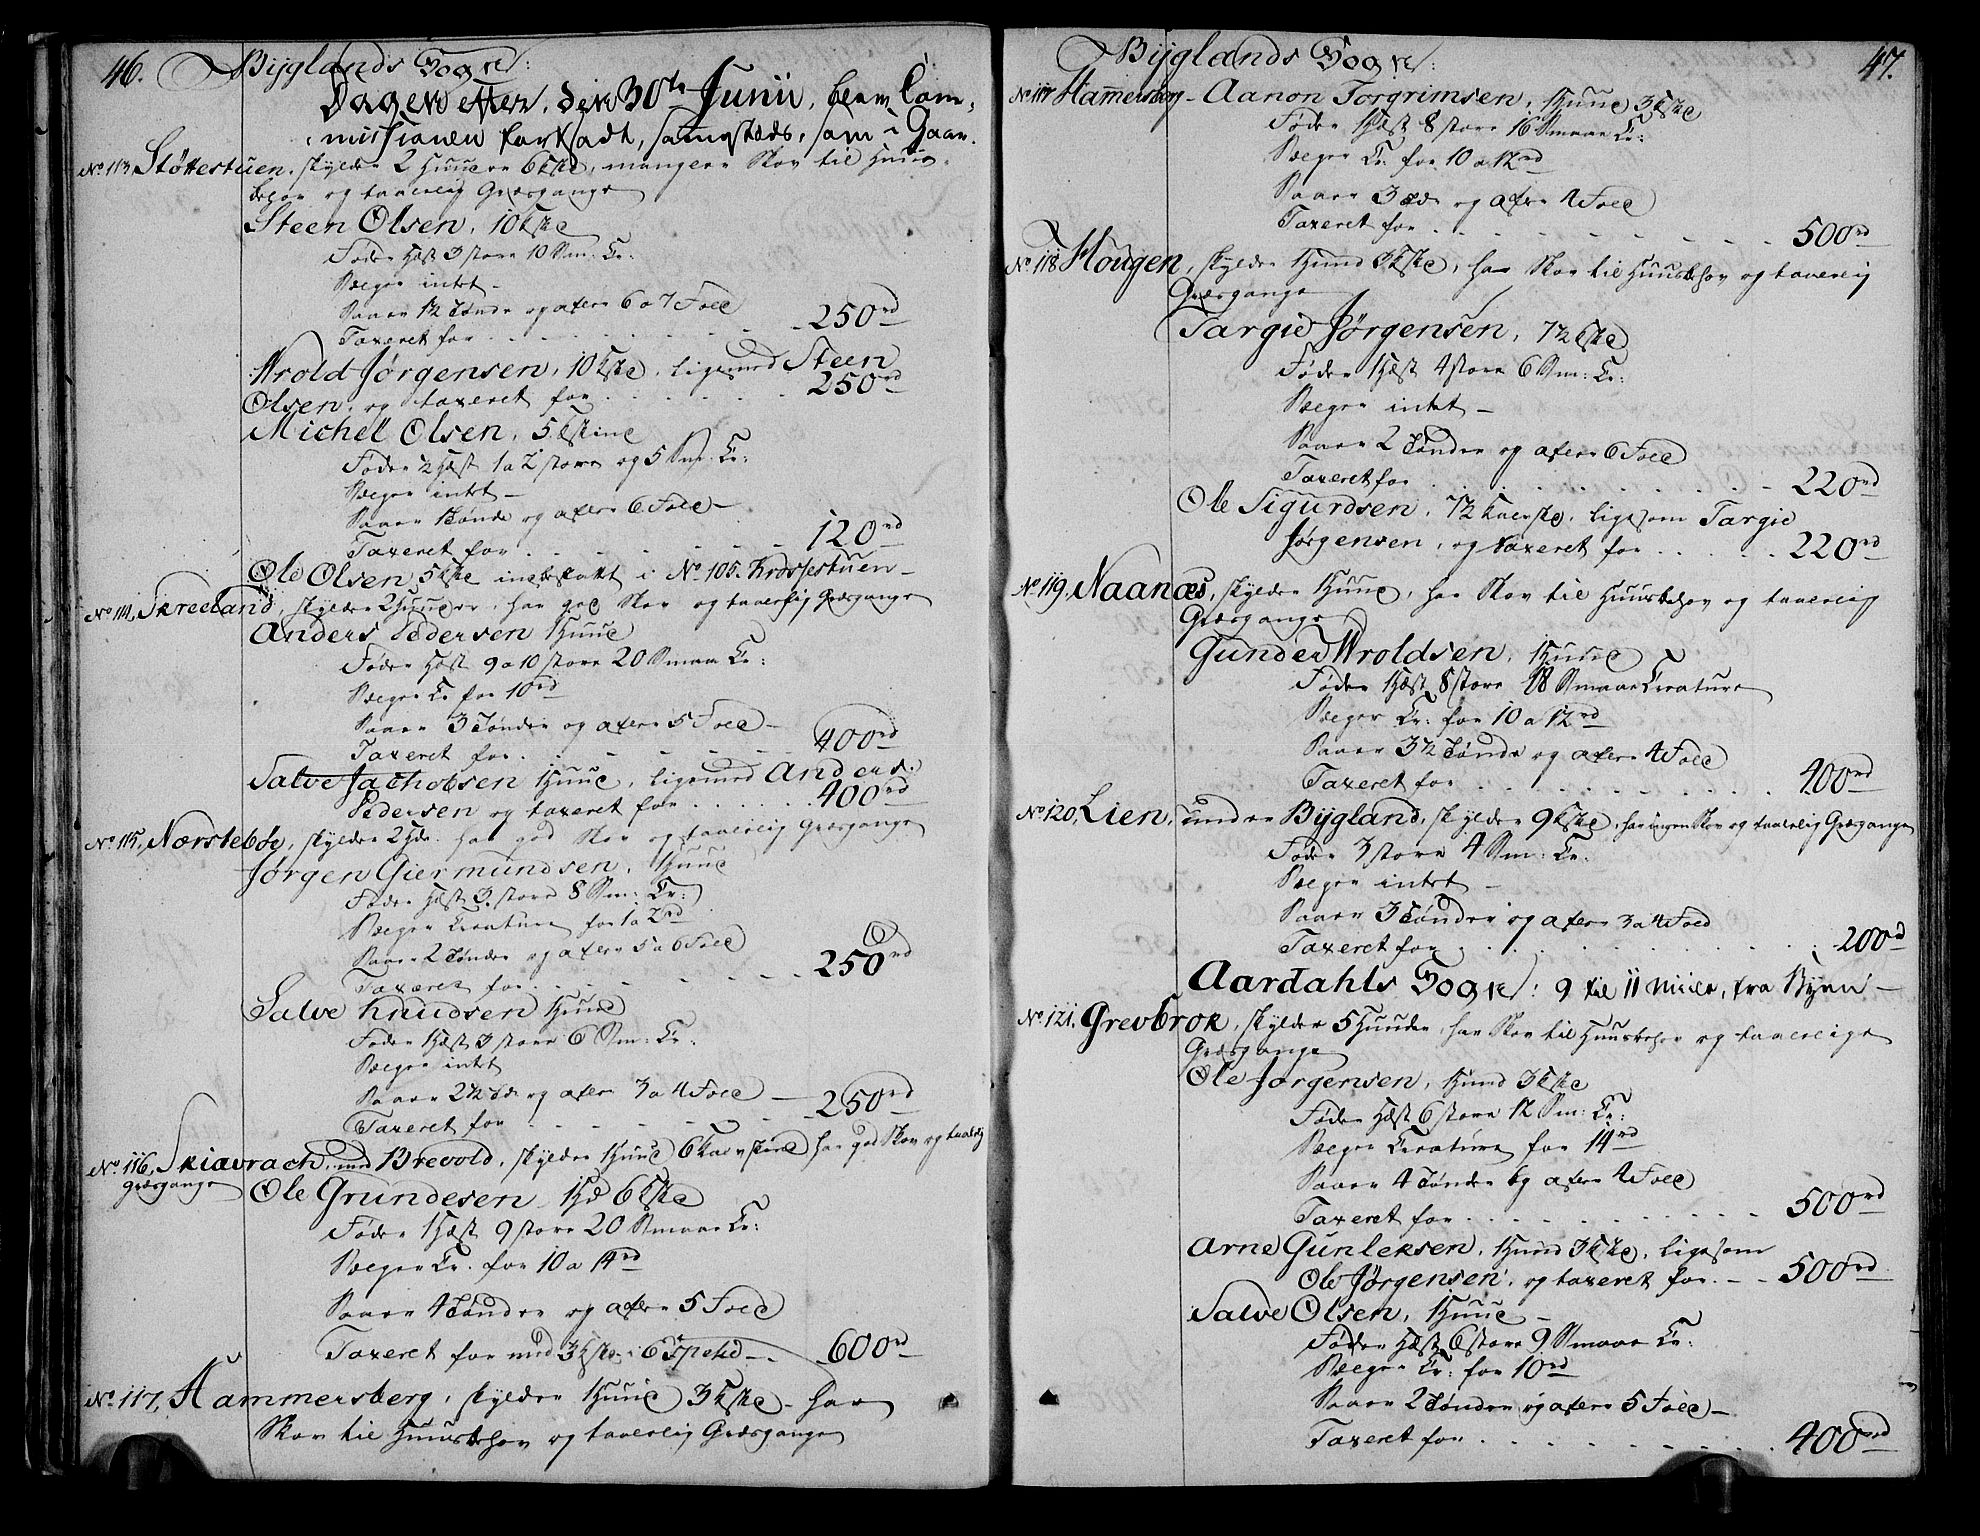 46. Byglands Sogn:
Dagen efter, den 30te Junii, blev Com-
missionen fortsadt, samesteds, som i Gaar.
No 113 Støttestuen, skylder 2 Huuder 6 kske, mangler Skov til Huus-
behov og taalelig Græsgange
Steen Olsen, 10 kske
Føder 1 Hæst 3 store 10 Sm: Cr:
Sælger intet -
Saaer 1½ Tønde og afler 6 a 7 Fold
Taxeret for . . . . 250rd
Wrold Jørgensen, 10 kske, ligesaa med Steen
Olsen, og taxeret for . . . . 250rd
Michell Olsen, 5 kskind
Føder ½ Hæst 1 a 2 store og 5 Sm: Cr:
Sælger intet -
Saaer 1 Tønde og afler 6 Fold -
Taxeret for . . . . 120rd
Ole Olsen 5 kske indbefattet i No 105. Krossestuen -
No 114, Skreeland, skylder 2 Huuder, har god Skov og taalelig Græsgange
Anders Pedersen 1 Huud
Føder 1 Hæst 9 a 10 store 20 Smaa Cr:
Sælger Cr for 10rd
Saaer 3 Tønder og afler 5 Fold -
Taxeret for . . . . 400rd
Salve Jachobsen 1 Huud, ligesaa med Anders
Pedersen og taxeret for . . . . 400rd
No 115, Nærstebøe, skylder 2 Hdr. har god Skov og taalelig Græsgange
Jørgen Giermundsen, 1 Huud
Føder 1 Hæst 3 store 8 Sm: Cr:
Sælger Creature for 1 a 2rd
Saaer 2 Tønder og afler 5 a 6 Fold
Taxeret for . . . . 250rd
Salve Knudsen 1 Huud
Føder 1 Hæst 3 store 6 Sm: Cr:
Sælger intet
Saaer 2½ Tde og afler 3 a 4 Fold -
Taxeret for . . . . 250rd
No 116, Skiævrach, med Brevold, skylder 1 Huud 6 Kalvskind har god Skov og taalelig
Græsgange
Ole Grundesen 1 Hd 6 kske
Føder 1 Hæst 9 store 20 Smaae Cr:
Sælger Cr. for 10 a 14rd
Saaer 4 Tønder og afler 5 Fold
Taxeret for med 3 kske i 6 600rd
No 117, Hammersberg, skylder 1 Huud 3 kske - har
Skov til Huusbehov og taalelig Græsgange
47. Byglands Sogn:
No 117 Hammersberg - Aanon Torgrimsen, 1 Huud 3 kske
Føder 1 Hæst 8 store 16 Smaae Cr:
Sælger Cr. for 10 a 12rd
Saaer 3 Tde og afler 4 Fold
Taxeret for . . . . 500rd
No 118 Hougen, skylder 1 Hund 3 kske, har Skov til Huusbehov og taalelig
Græsgange
Targie Jørgensen, 7½ kske
Føder 1 Hæst 4 store 6 Sm: Cr:
Sælger intet -
Saaer 2 Tønder og afler 6 Fold
Taxeret for . . . . 220rd
Ole Sigurdsen, 7½ kalvske, ligesom Targie
Jørgensen, og taxeret for . . . . 220rd
No 119, Naanæs, skylder 1 Huud, har Skov til Huusbehov og taalelig
Græsgange
Gunder Wroldsen, 1 Huud
Føder 1 Hæst 8 store 18 Smaae Creature
Sælger Cr: for 10 a 12rd
Saaer 3½ Tønde og afler 4 Fold
Taxeret for . . . . 400rd
No 120, Lien, under Bygland, skylder 9 kske, har ingen Skov og taalelig Græsgange
Føder 3 store 4 Sm: Cr:
Sælger intet -
Saaer 3 Tønder og afler 3 a 4 Fold
Taxeret for . . . . 200rd
Aardahls Sogn: 9 til 11 Miile, fra Byen -
No 121. Grevbrok, skylder 5 Huuder, har Skov til Huusbehov og taalelige
Græsgange
Ole Jørgensen, 1 Hund 3 kske
Føder 1 Hæst 6 store 12 Sm: Cr:
Sælger Creature for 14rd
Saaer 4 Tønder og afler 4 Fold
Taxeret for . . . . 500rd
Arne Gunleksen, 1 Hund 3 kske, ligesom
Ole Jørgensen, og taxeret for . - . 500rd
Salve Olsen, 1 Huud -
Føder 1 Hæst 6 store 9 Smaae Cr:
Sælger Cr: for 10rd
Saaer 2 Tønder og afler 5 Fold -
Taxeret for . . . . 400rd